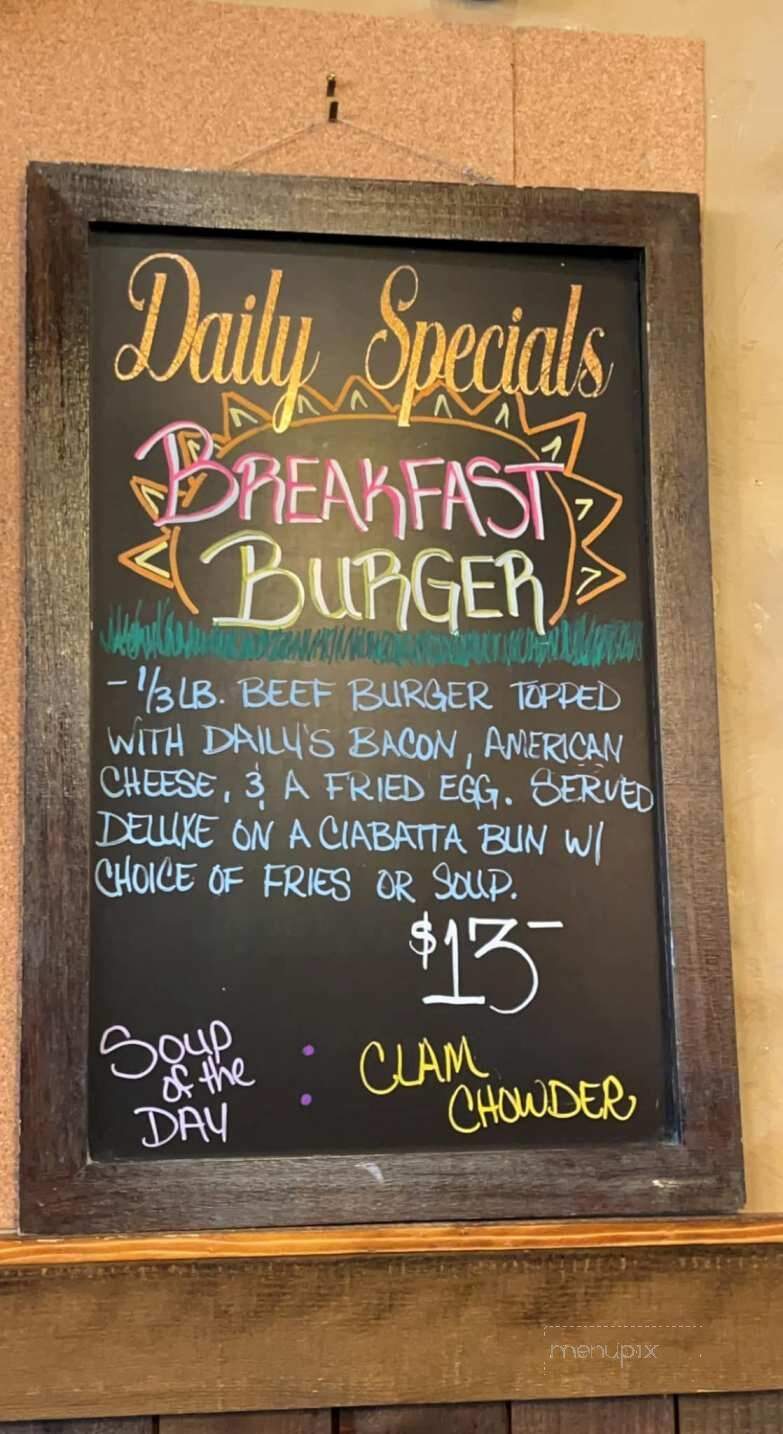 Daily Specials
BREAKFAST
BURGER
- 1/3 LB. BEEF BURGER TOPPED
WITH DAILY'S BACON, AMERICAN
CHEESE, & A FRIED EGG. SERVED
DELUXE ON A CIABATTA BUN W/
CHOICE OF FRIES OR SOUP.
$13-
SOUP
of the
DAY
:
CLAM
CHOWDER
menupix